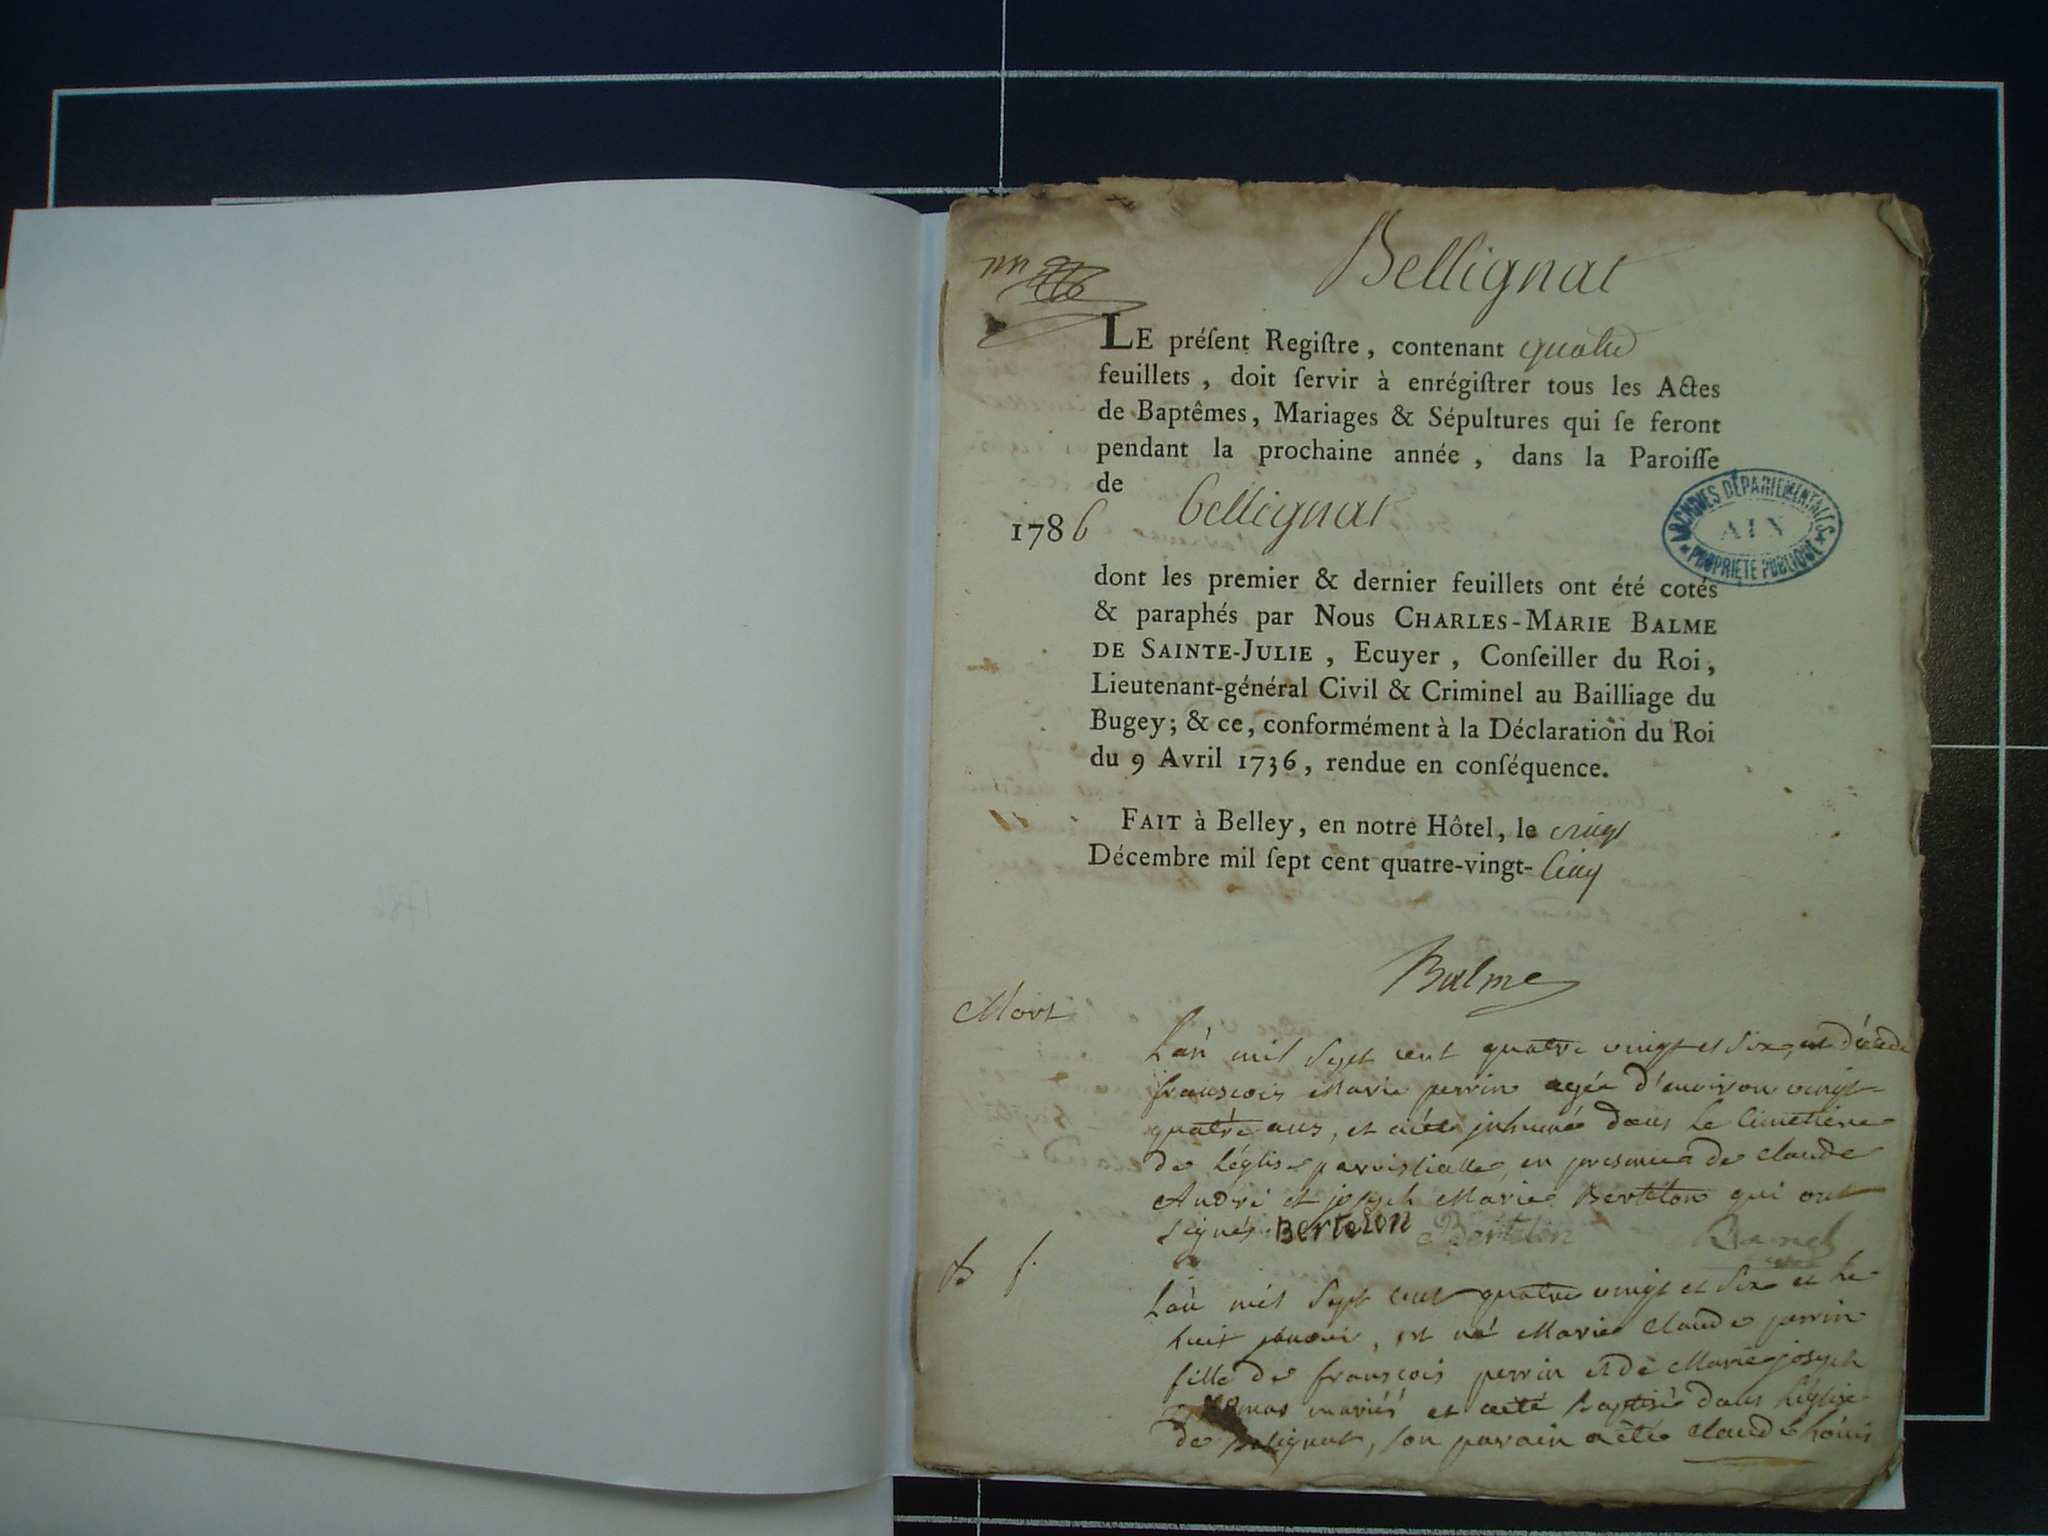 Bellignat
LE préſent Regiſtre, contenant quatre
feuillets, doit ſervir à enrégiſtrer tous les Actes
de Baptêmes, Mariages & Sépultures qui ſe feront
pendant la prochaine année, dans la Paroiſſe
de
1786 bellignat
ARCHIVES DÉPARTEMENTALES
AIN
PROPRIÉTÉ PUBLIQUE
dont les premier & dernier feuillets ont été cotés
& paraphés par Nous CHARLES-MARIE BALME
DE SAINTE-JULIE, Ecuyer, Conſeiller du Roi,
Lieutenant-général Civil & Criminel au Bailliage du
Bugey; & ce, conformément à la Déclaration du Roi
du 9 Avril 1736, rendue en conſéquence.
FAIT à Belley, en notre Hôtel, le vingt
Décembre mil ſept cent quatre-vingt-cinq
Balme
Mort
L'an mil sept cent quatre vingt et six, est décédé
françois Marie perrin agée d'environ vingt
quatre ans, et aété inhumé dans le cimetière
de l'église parroissialle en presence de claude
André et joseph Marie Bertelon qui ont
signés. Bertelon Bertelon
B f.
L'an mil sept cent quatre vingt et six et le
huit janvier, est né Marie Claude perrin
fille de françois perrin et de Marie joseph
mariés et aété baptisé dans l'église
de Belignat, son parain aété claude Louis